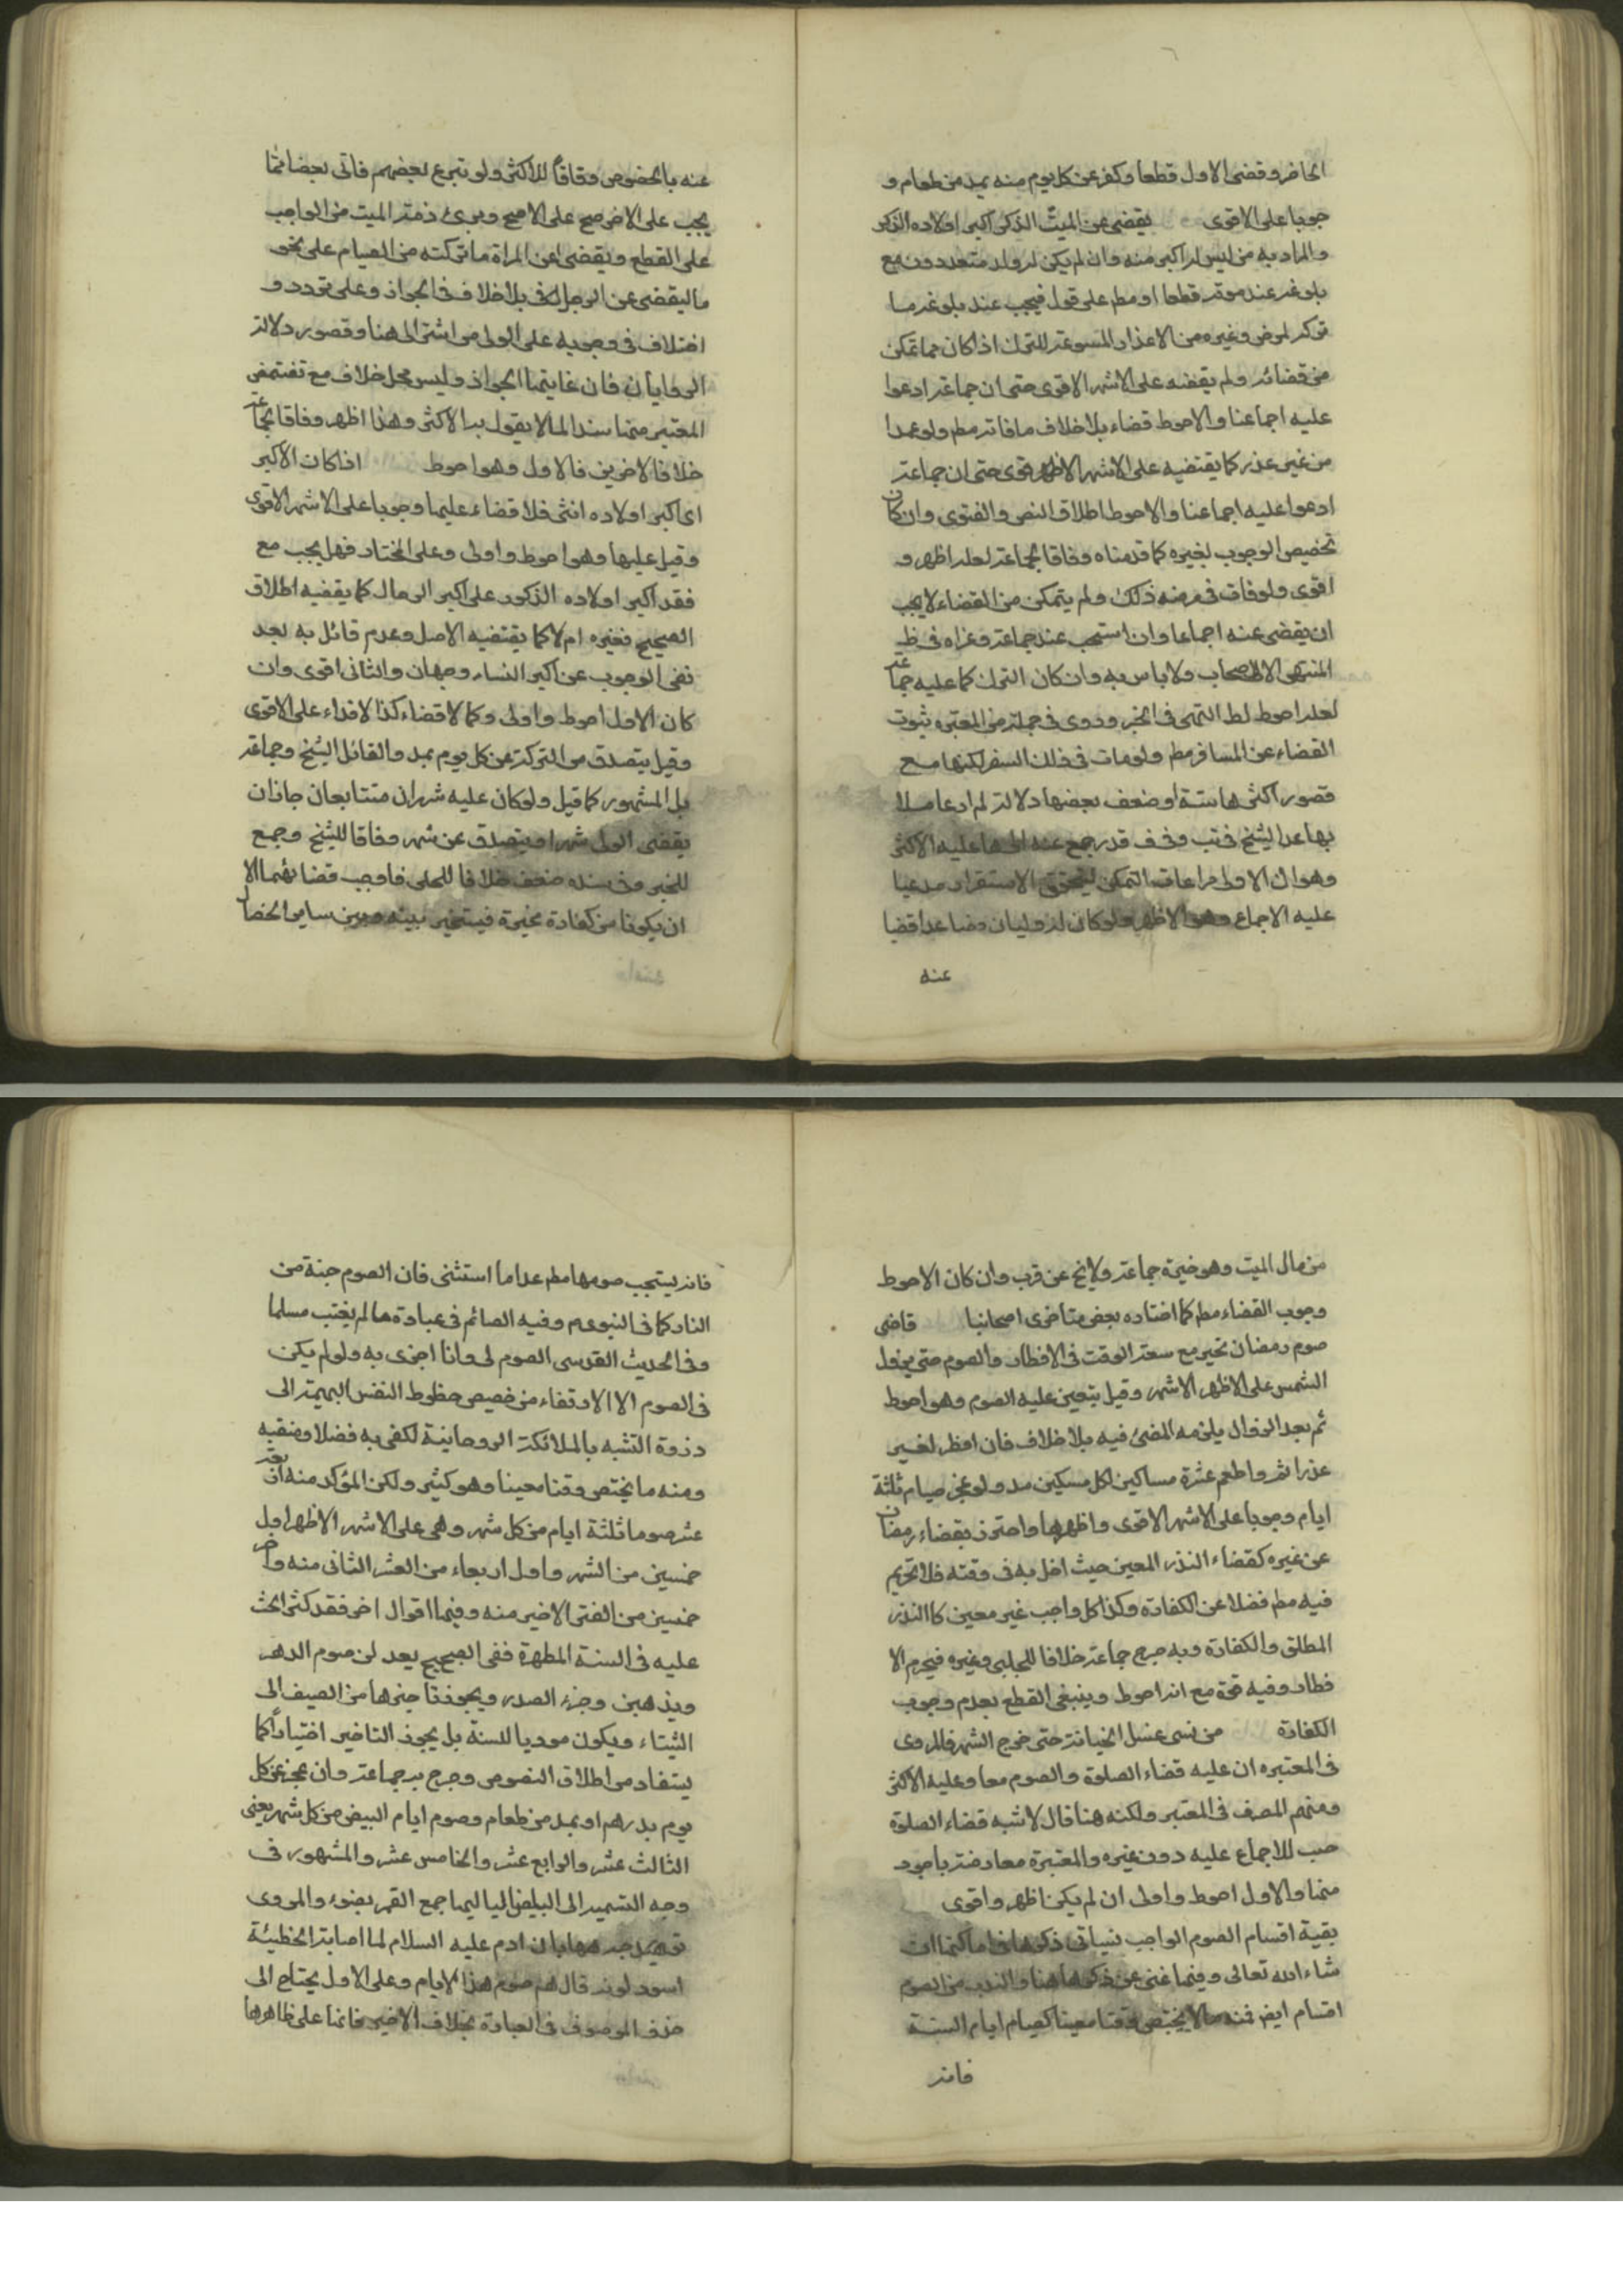 الحاضر وقضى الاول قطعا وكفر عن كل يوم منه بمد من طعام و
جوبا على الاقوى يقضى عن الميت الذكر اكبر اولاده الذكر
والمراد به من ليس له اكبر منه وان لم يكن له ولد متعددون مع
بلوغه عند موته قطعا او مط على قول فيجب عند بلوغه ما
تركه لمرض وغيره من الاعذار المسوغة للترك اذا كان مما تمكن
من قضائه ولم يقضه على الاشهر الاقوى حتى ان جماعة ادعوا
عليه اجماعنا والاحوط قضاء بلا خلاف ما فاته مط ولو عمدا
من غير عذر كما يقتضيه على الاشهر الاظهر قوى حتى ان جماعة
ادعوا عليه اجماعنا والاحوط اطلاق النص والفتوى وان كان
تخصيص الوجوب بغيره كما قدمناه وفاقا لجماعة لعله اظهر و
اقوى ولو فات فى مرضه ذلك ولم يتمكن من القضاء لا يجب
ان يقضى عنه اجماعا وان استحب عند جماعة وعزاه فى ظ
المنتهى الا الاصحاب ولا باس به وان كان الترك كما عليه جماعة
لعله احوط لظ النهى فى الخبر وروى فى جملة من المعتبره ثبوت
القضاء عن المسافر مط ولو مات فى ذلك السفر لكنها مع
قصور اكثرها سندا وضعف بعضها دلالة لم ار عاملا
بها عدا الشيخ فى تب وفى ف قد رجع عنه الى ما عليه الاكثر
وهو ان الاولى مراعات التمكن ليتحقق الاستقرار مدعيا
عليه الاجماع وهو الاظهر ولو كان له وليان فصاعدا قضيا
عنه
عنه بالحصص وفاقاً للاكثر ولو تبرع بعضهم فاتى بعضا مما
يجب على الاخر صح على الاصح وبرئ ذمة الميت من الواجب
على القطع ويقضى عن المراة ما تركته من الصيام على نحو
ما ليقضى عن الرجل لكن بلا خلاف فى الجواز وعلى تردد و
اختلاف فى وجوبه على الولى من اشترالى هنا وقصور دلالة
الروايان فان غايتها الجواز وليس محل خلاف مع تضمن
المعتبر منها سندا لما لا يقول به الاكثر وهذا اظهر وفاقا لجماعة
خلافا لاخرين فالاول وهو احوط اذا كان الاكبر
اى اكبر اولاده انثى فلا قضاء عليها وجوبا على الاشهر الاقوى
وقيل عليها وهو احوط واولى وعلى المختار فهل يجب مع
فقد اكبر اولاده الذكور على اكبر الرجال كما يقضيه اطلاق
الصحيح فغيره ام لا كما يقتضيه الاصل وعدم قائل به بعد
نفى الوجوب عن اكبر النساء وجهان والثانى اقوى وان
كان الاول احوط واولى وكما لا قضاء كذا لا فداء على الاقوى
وقيل يتصدق من التركة عن كل يوم بمد والقائل الشيخ وجماعة
بل المشهور كما قيل ولو كان عليه شهران متتابعان جاز ان
يقضى الولى شهرا ويتصدق عن شهر وفاقا للشيخ وجمع
للخبر وفى سنده ضعف خلافا للحلى فاوجب قضائهما الا
ان يكونا من كفارة مخيرة فيتخير بينه وبين ساير الخصال
من مال الميت وهو خيرة جماعة ولا يخ عن قرب وان كان الاحوط
وجوب القضاء مط كما اختاره بعض متاخرى اصحابنا قاضى
صوم رمضان تخير مع سعة الوقت فى الافطار والصوم حتى يزول
الشمس على الاظهر الاشهر وقيل يتعين عليه الصوم وهو احوط
ثم بعد الزوال يلزمه المضى فيه بلا خلاف فان افطر لغير
عذر اثم واطعم عشرة مساكين لكل مسكين مد ولو عجز صيام ثلثة
ايام وجوبا على الاشهر الاقوى واظهرها واحترز بقضاء رمضان
عن غيره كقضاء النذر المعين حيث اخل به فى وقته فلا تحريم
فيه مط فضلا عن الكفارة وكذا كل واجب غير معين كالنذر
المطلق والكفارة وبه صرح جماعة خلافا للحلبى وغيره فيحرم الا
فطار وفيه قوة مع انه احوط وينبغى القطع بعدم وجوب
الكفارة من نسى غسل الجنابة حتى خرج الشهر فالمروى
فى المعتبره ان عليه قضاء الصلوة والصوم معا وعليه الاكثر
ومنهم المصنف فى المعتبر ولكنه هنا قال لا شبه قضاء الصلوة
حسب للاجماع عليه دون غيره والمعتبرة معارضة باجود
منها والاول احوط واولى ان لم يكن اظهر واقوى
بقية اقسام الصوم الواجب سياتى ذكرها فى اماكنها ان
شاء الله تعالى وفيها غنى عن ذكرها هنا والندب من الصوم
اقسام ايض فمنه ما لا يختص وقتا معينا كصيام ايام السنة
فانه
فانه يستحب صومها مط عدا ما استثنى فان الصوم جنة من
النار كما فى النبوى وفيه الصائم فى عبادة ما لم يغتب مسلما
وفى الحديث القدسى الصوم لى وانا اجزى به ولو لم يكن
فى الصوم الا الارتقاء من خصيص حظوظ النفس البهيمة الى
ذروة التشبه بالملائكة الروحانية لكفى به فضلا ومنقبه
ومنه ما يختص وقتا معينا وهو كثير ولكن المؤكد منه اربعة
عشر صوما ثلثة ايام من كل شهر وهى على الاشهر الاظهر اول
خمسين من الشهر واول اربعاء من العشر الثانى منه واخر
خمسين من العشر الاخير منه وفيها اقوال اخر فقد كثر الحث
عليه فى السنة المطهرة ففى الصحيح يعدلن صوم الدهر
ويذهبن وحر الصدر ويجوز تاخيرها من الصيف الى
الشتاء ويكون موديا للسنة بل يجوز التاخير اختياراً كما
يستفاد من اطلاق النصوص وصرح به جماعة وان عجز عن كل
يوم بدرهم او بمد من طعام وصوم ايام البيض من كل شهر يعنى
الثالث عشر والرابع عشر والخامس عشر والمشهور فى
وجه التسمية الى البيض لياليها جمع القمر بضوء والمروى
بان ادم عليه السلام لما اصابته الخطيئة
اسود لونه قال هم صوم هذا الايام وعلى الاول يحتاج الى
حذف الموصوف فى العبارة بخلاف الاخير فانها على ظاهرها